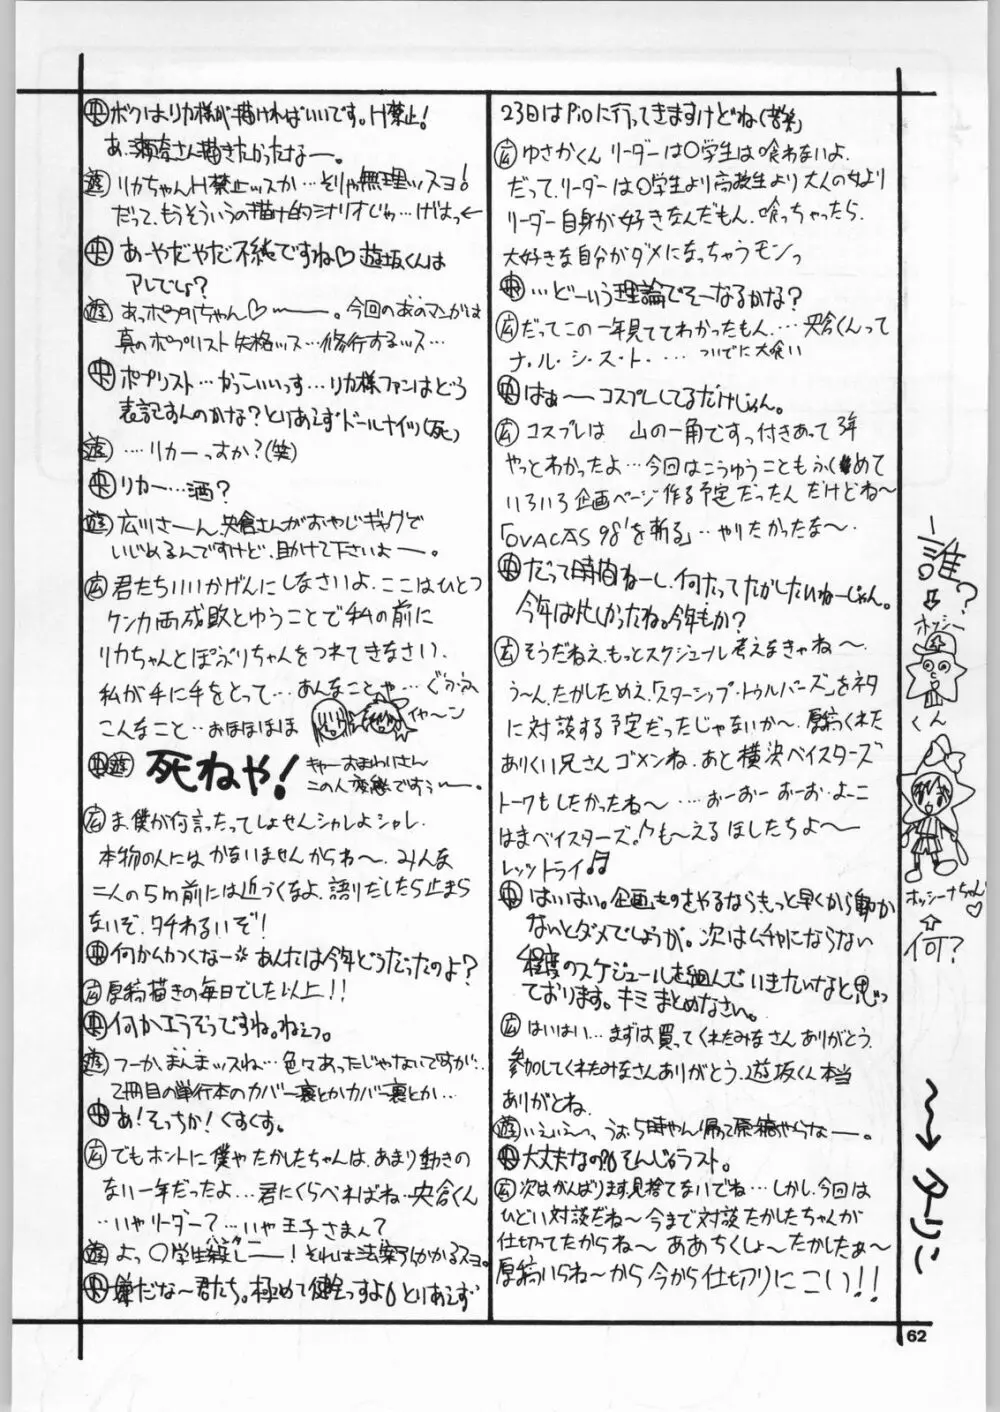 央 ボクはリカ様が描ければいいです。H禁止!
あ、瀬奈さん描きたかったなー。
遊 リカちゃんH禁止ッスか…そりゃ無理ッスヨ!
だって、もうそういうの描け的シナリオじゃ…げはっ←
央 あーやだやだ不純ですね♡遊坂くんは
アレでしょ?
遊 あっポプリちゃん♡〜〜。今回のあのマンガは
真のポプリスト失格ッス…修行するッス…
央 ポプリスト…かっこいいっす…リカ様ファンはどう
表記すんのかな?とりあえずドールナイツ(死)
遊 ‥‥リカーっすか?(笑)
央 リカー…酒?
遊 広川さーん、央倉さんがおやじギャグで
いじめるんですけど、助けて下さいよー。
広 君たちいいかげんにしなさいよ、ここはひとつ
ケンカ両成敗とゆうことで私の前に
リカちゃんとぽぷりちゃんをつれてきなさい、
私が手に手をとって…あんなことや…ぐふふ
こんなこと…おほほほほ
イヤ〜ン
央 遊 死ねや!
キャーおまわりさん
この人変態ですぅー。
広 ま、僕が何言ったってしょせんシャレよシャレ、
本物の人にはかないませんからね〜、みんな
二人の5m前には近づくなよ、語りだしたら止まら
ないぞ、タチわるいぞ!
央 何かムカつくなー※あんたは今年どうだったのよ?
広 原稿描きの毎日でした以上!!
央 何かエラそうですね。ねぇっ。
遊 つーか、まんまッスね…色々あったじゃないですが‥
2冊目の単行本のカバー裏とかカバー裏とか…
央 あ!そっちか!くすくす。
広 でもホントに僕やたかしたちゃんは、あまり動きの
ない一年だったよ…君にくらべればね…央倉くん
‥いやリーダー?…いや王子さまぁ?
ハンター
遊 よっ、〇学生殺しー!それは法案にひっかかるスヨ。
央 嫌だな〜君たち。極めて健全っすよ とりあえず
23日はPiOに行ってきますけどね(苦笑)
広 ゆさかくんリーダーは〇学生は喰わないよ、
だって、リーダーは〇学生より高校生より大人の女より
リーダー自身が好きなんだもん、喰っちゃったら、
大好きな自分がダメになっちゃうモンっ
央 …どーいう理論でそーなるかな?
広 だってこの一年見ててわかったもん、…央倉くんって
ナ・ル・シ・ス・ト・…ついでに大喰い
央 はぁ〜コスプレしてるだけじゃん。
広 コスプレは山の一角ですっ付きあって3年
やっとわかったよ…今回はこうゆうこともふくめて
いろいろ企画ページ作る予定だったんだけどね〜
「OVACAS98'を斬る」…やりたかったな〜、
央 だって時間ねーし、何たってたかしたいねーじゃん。
今年は忙しかったね。今年もか?
広 そうだねえ、もっとスケジュール考えなきゃね〜、
う〜ん、たかしためえ、「スターシップ・トゥルパーズ」をネタ
に対談する予定だったじゃないか〜、原稿くれた
ありくい兄さんゴメンね、あと横浜ベイスターズ
トークもしたかったね〜‥‥おーおーおーお・よーこ
はまベイスターズ!♪も〜えるほしたちよ〜
レッツトライ♫
央 はいはい。企画ものをやるなら、もっと早くから動か
ないとダメでしょうが。次はムチャにならない
程度のスケジュールを組んでいきたいなと思っ
ております。キミまとめなさい。
広 はいはい…まずは買ってくれたみなさんありがとう、
参加してくれたみなさんありがとう、遊坂くん本当
ありがとね、
遊 いえいえ〜っ、うお、5時やん帰って原稿やらなー。
央 大丈夫なの? そんじゃラスト。
広 次はがんばります、見捨てないでね…しかし、今回は
ひどい対談だね〜今まで対談たかしたちゃんが
仕切ってたからね〜ああちくしょ〜たかしたぁ〜
原稿いらね〜から今から仕切りにこい!!
誰?
ホッシー
くん
ホッシーナちゃん
♡
何?
〜→ターリン
62